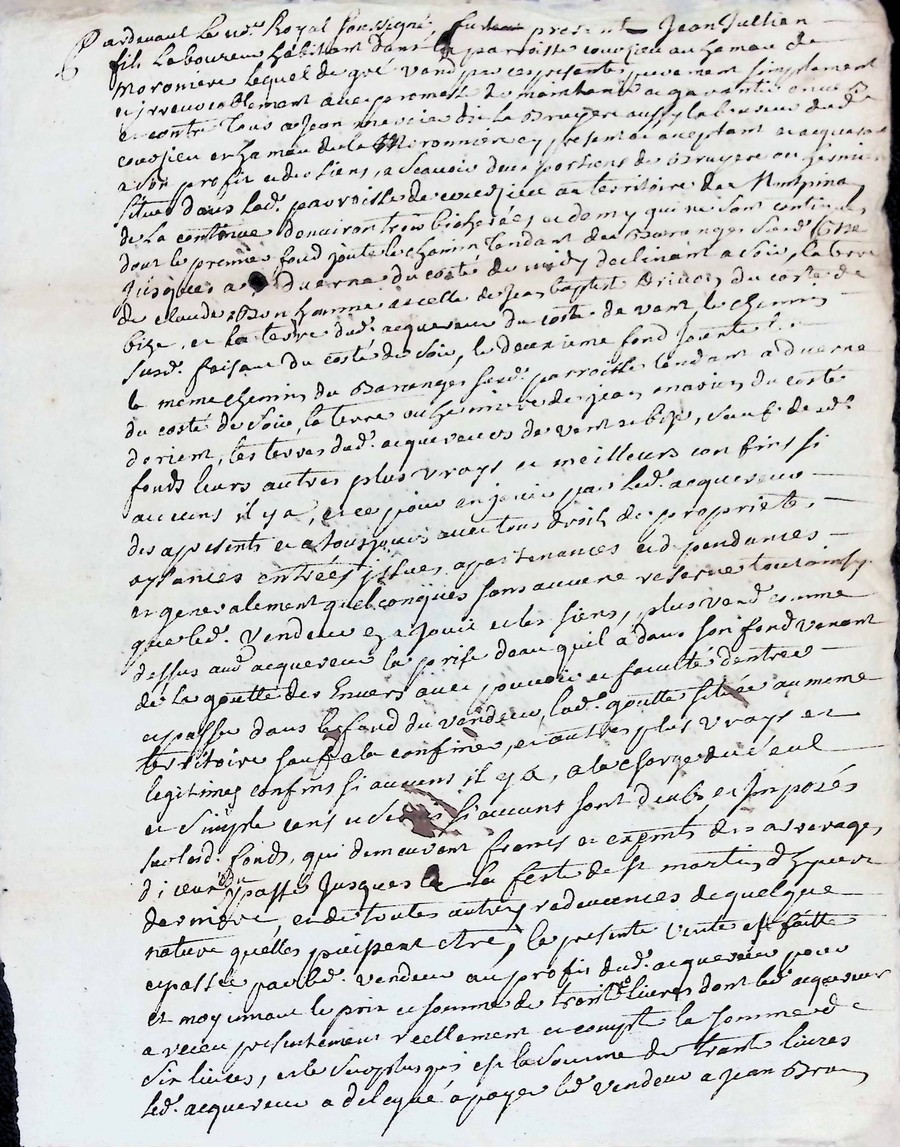 Pardevant Le no.re Royal soussigné fut present Jean Jullien
fils Laboureur habitant dans la parroisse courzieu au hameau de
moroniere lequel de gré vend par ces presentes purement simplement
et irrevocablement avec promesse de maintenir et garantir envers
et contre tous a Jean mercier dit La Bruyere aussy laboureur dud.
courzieu en hameau de la Moronniere cy present et aceptant et acquereur
a son profit et des siens, a scavoir deux portions de Bruyere ou hermiere
situées dans lad. parroisse de courzieu au territoire de
de la contenue d'environ trois bicherées et demy qui se sont contigues
dont le premier fond joute le chemin tendant des Baranges
jusques a duerne du costé du midy declinant a soir, la terre
de claude Bonhomme et celle de jean baptiste du costé de
bize, et la terre dud. acquereur du costé de vent, le chemin
susd. faisant du costé de soir, le deuxieme fond joute
le meme chemin du Baranges susd. parroisse tendant a duerne
du costé de soir, la terre ou hermiere de jean du costé
dorient, les terres dud. acquereur de vent et bize, sauf desd.
fonds leurs autres plus vrays et meilleurs confins si
aucuns il y a, et ce pour en jouir par led. acquereur
des apresents et a tousjours avec tous droits de proprietés
aysances entrées issues apartenances et dependances
et generalement quelconques sans aucune reserve tout ainsy
que led. vendeur en a jouit et les siens, plus vend comme
dessus aud. acquereur la prise deau quil a dans son fond venant
de la goutte des Envers avec pouvoir et faculté dentrer
et passer dans le fond du vendeur, lad. goutte située au meme
territoire sauf a la confiner, et autres plus vrays et
legitimes confins si aucuns il y a, a la charge du seul
et simple cens et servis si aucuns sont deubs et imposés
sur lesd. fonds, qui demeurent francs et exempts des arrerages
diceux du passé jusques a la feste de st martin dhyver
derniere, et de toutes autres redevances de quelque
nature quelles puissent etre, la presente vente est faitte
et passée par led. vendeur au profit dud. acquereur pour
et moyenant le prix et somme de livres dont led. acquereur
a receu presentement reellement et compté la somme de
six livres, et le surplus qui est la somme de trente livres
led. acquereur a delegué a payer led. vendeur a jean